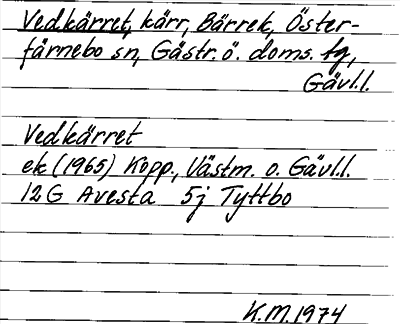 Vedkärret, kärr, Bärrek, Öster-
färnebo sn, Gästr. ö. doms. tg,
Gävl.l.
Vedkärret
ek (1965) Kopp., Västm. o. Gävl.l.
12G Avesta 5j Tyttbo
K.M. 1974